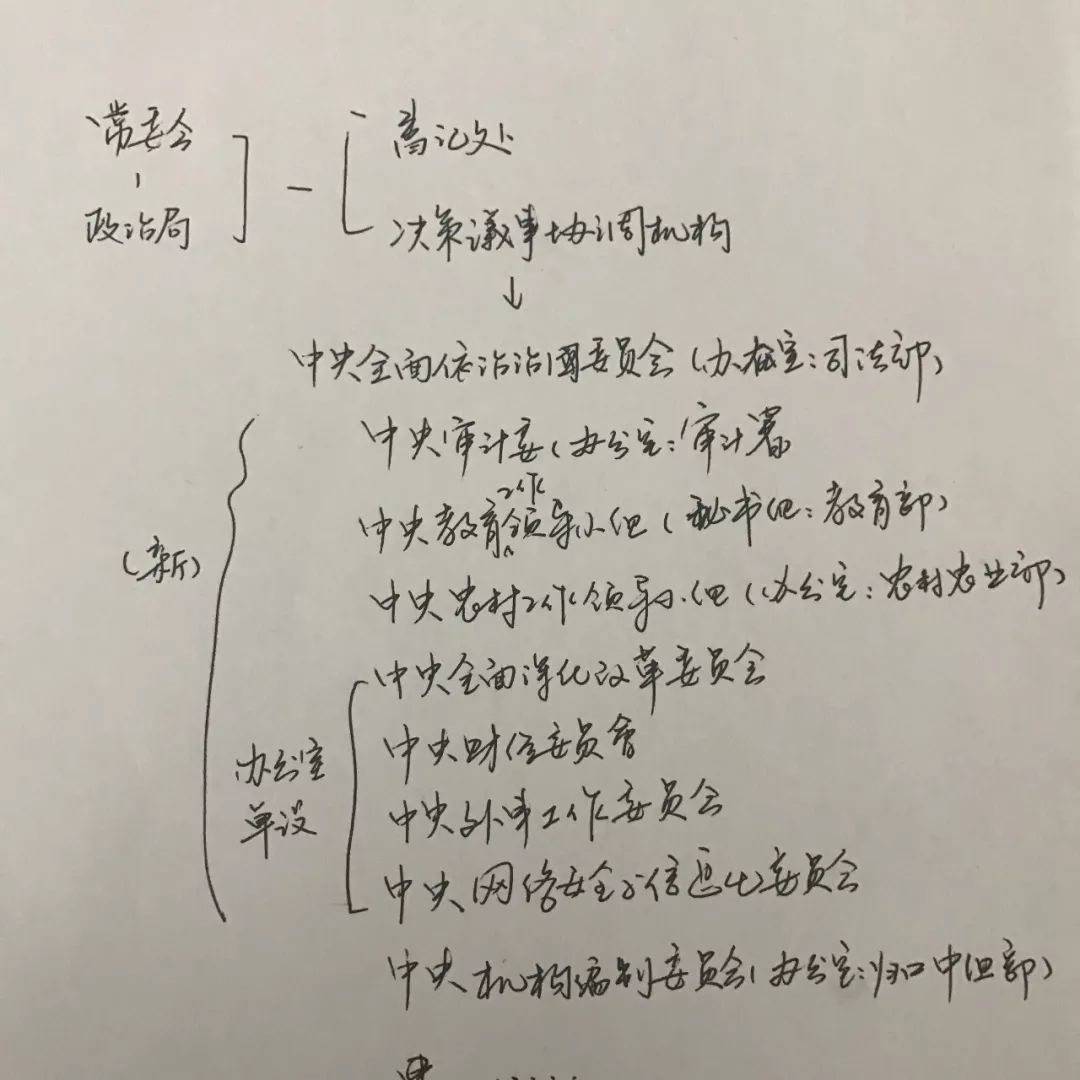 常委会
政治局
书记处
决策议事协调机构
中央全面依法治国委员会(办公室:司法部)
(新)
中央审计委(办公室:审计署
中央教育工作领导小组(秘书组:教育部)
中央农村工作领导小组(办公室:农村农业部)
办公室
单设
中央全面深化改革委员会
中央财经委员會
中央外事工作委员会
中央网络安全与信息化委员会
中央机构编制委员会(办公室:归口中组部)